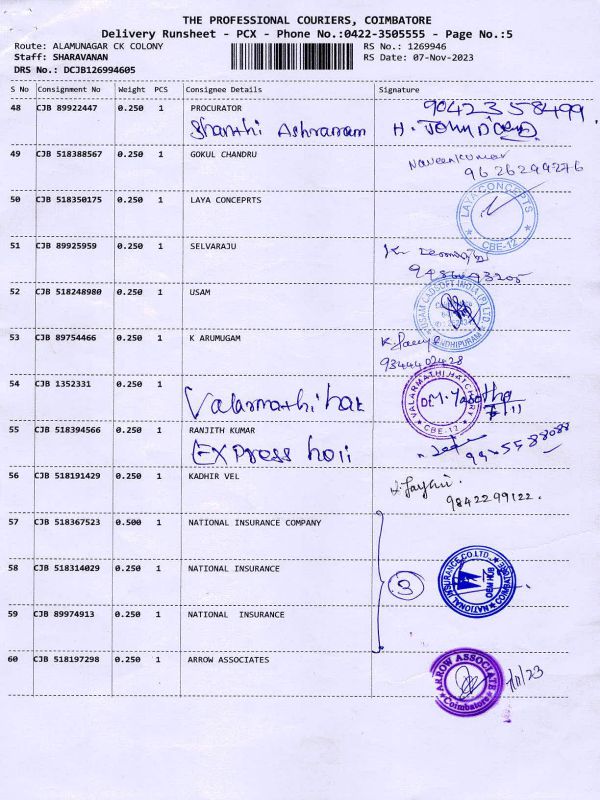 THE PROFESSIONAL COURIERS, COIMBATORE
Delivery Runsheet - PCX - Phone No.:0422-3505555 - Page No.:5
Route: ALAMUNAGAR CK COLONY RS No.: 1269946
Staff: SHARAVANAN RS Date: 07-Nov-2023
DRS No.: DCJB126994605
S No Consignment No Weight PCS Consignee Details Signature
48 CJB 89922447 0.250 1 PROCURATOR 90423 58499
Shanthi Ashramam
49 CJB 518388567 0.250 1 GOKUL CHANDRU Naveenkumar
9626299276
50 CJB 518350175 0.250 1 LAYA CONCEPRTS
LAYA CONCEPTS
CBE-12
51 CJB 89925959 0.250 1 SELVARAJU
52 CJB 518248980 0.250 1 USAM
USAM CADSOFT INDIA (P) LTD
GANDHIPURAM
53 CJB 89754466 0.250 1 K ARUMUGAM
9344402428
54 CJB 1352331 0.250 1
Valarmathi hat
VALARMATHI HATCHERY
CBE-12
55 CJB 518394566 0.250 1 RANJITH KUMAR
Express holi
56 CJB 518191429 0.250 1 KADHIR VEL
9842299122.
57 CJB 518367523 0.500 1 NATIONAL INSURANCE COMPANY
58 CJB 518314029 0.250 1 NATIONAL INSURANCE
3
NATIONAL INSURANCE CO.LTD.
COIMBATORE
59 CJB 89974913 0.250 1 NATIONAL INSURANCE
60 CJB 518197298 0.250 1 ARROW ASSOCIATES
ARROW ASSOCIATE
Coimbatore
7/11/23